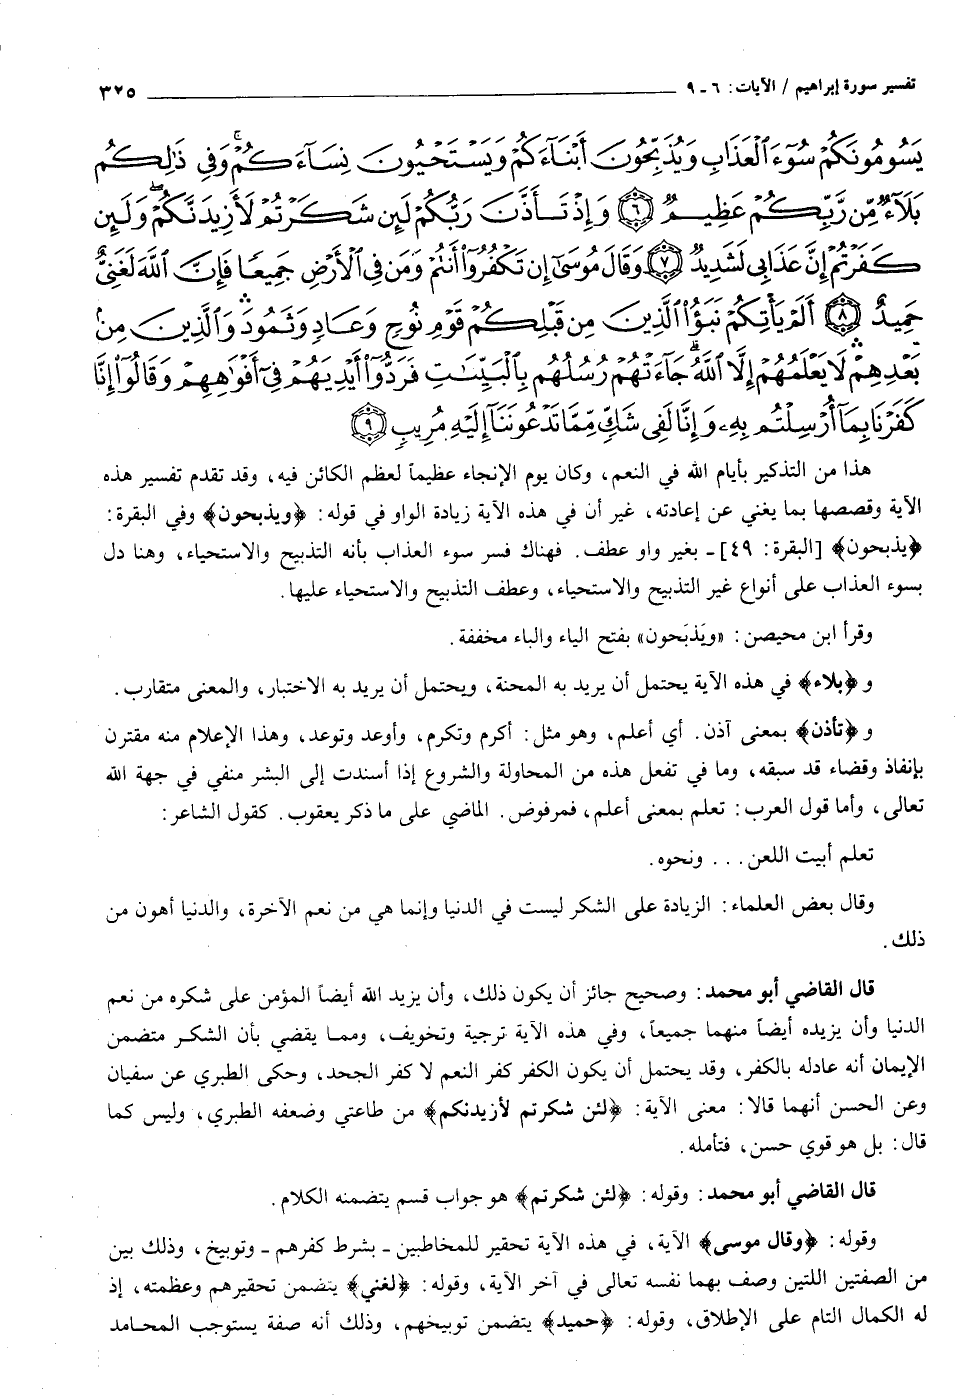 تفسير سورة إبراهيم / الآيات: ٦ - ٩ ٣٢٥
يَسُومُونَكُمْ سُوٓءَ ٱلْعَذَابِ وَيُذَبِّحُونَ أَبْنَآءَكُمْ وَيَسْتَحْيُونَ نِسَآءَكُمْ ۚ وَفِى ذَٰلِكُم
بَلَآءٌ مِّن رَّبِّكُمْ عَظِيمٌ ٦ وَإِذْ تَأَذَّنَ رَبُّكُمْ لَئِن شَكَرْتُمْ لَأَزِيدَنَّكُمْ ۖ وَلَئِن
كَفَرْتُمْ إِنَّ عَذَابِى لَشَدِيدٌ ٧ وَقَالَ مُوسَىٰٓ إِن تَكْفُرُوٓا۟ أَنتُمْ وَمَن فِى ٱلْأَرْضِ جَمِيعًا فَإِنَّ ٱللَّهَ لَغَنِىٌّ
حَمِيدٌ ٨ أَلَمْ يَأْتِكُمْ نَبَؤُا۟ ٱلَّذِينَ مِن قَبْلِكُمْ قَوْمِ نُوحٍ وَعَادٍ وَثَمُودَ ۛ وَٱلَّذِينَ مِنۢ
بَعْدِهِمْ ۛ لَا يَعْلَمُهُمْ إِلَّا ٱللَّهُ ۚ جَآءَتْهُمْ رُسُلُهُم بِٱلْبَيِّنَـٰتِ فَرَدُّوٓا۟ أَيْدِيَهُمْ فِىٓ أَفْوَٰهِهِمْ وَقَالُوٓا۟ إِنَّا
كَفَرْنَا بِمَآ أُرْسِلْتُم بِهِۦ وَإِنَّا لَفِى شَكٍّ مِّمَّا تَدْعُونَنَآ إِلَيْهِ مُرِيبٍ ٩
هذا من التذكير بأيام الله في النعم، وكان يوم الإنجاء عظيماً لعظم الكائن فيه، وقد تقدم تفسير هذه
الآية وقصصها بما يغني عن إعادته، غير أن في هذه الآية زيادة الواو في قوله: ﴿ويذبحون﴾ وفي البقرة:
﴿يذبحون﴾ [البقرة: ٤٩] - بغير واو عطف. فهناك فسر سوء العذاب بأنه التذبيح والاستحياء، وهنا دل
بسوء العذاب على أنواع غير التذبيح والاستحياء، وعطف التذبيح والاستحياء عليها.
وقرأ ابن محيصن: «ويَذبَحون» بفتح الياء والباء مخففة.
و ﴿بلاء﴾ في هذه الآية يحتمل أن يريد به المحنة، ويحتمل أن يريد به الاختبار، والمعنى متقارب.
و ﴿تأذن﴾ بمعنى آذن. أي أعلم، وهو مثل: أكرم وتكرم، وأوعد وتوعد، وهذا الإعلام منه مقترن
بإنفاذ وقضاء قد سبقه، وما في تفعل هذه من المحاولة والشروع إذا أسندت إلى البشر منفي في جهة الله
تعالى، وأما قول العرب: تعلم بمعنى أعلم، فمرفوض. الماضي على ما ذكر يعقوب. كقول الشاعر:
تعلم أبيت اللعن. . . ونحوه.
وقال بعض العلماء: الزيادة على الشكر ليست في الدنيا وإنما هي من نعم الآخرة، والدنيا أهون من
ذلك.
قال القاضي أبو محمد: وصحيح جائز أن يكون ذلك، وأن يزيد الله أيضاً المؤمن على شكره من نعم
الدنيا وأن يزيده أيضاً منهما جميعاً، وفي هذه الآية ترجية وتخويف، ومما يقضي بأن الشكر متضمن
الإيمان أنه عادله بالكفر، وقد يحتمل أن يكون الكفر كفر النعم لا كفر الجحد، وحكى الطبري عن سفيان
وعن الحسن أنهما قالا: معنى الآية: ﴿لئن شكرتم لأزيدنكم﴾ من طاعتي وضعفه الطبري، وليس كما
قال: بل هو قوي حسن، فتأمله.
قال القاضي أبو محمد: وقوله: ﴿لئن شكرتم﴾ هو جواب قسم يتضمنه الكلام.
وقوله: ﴿وقال موسى﴾ الآية، في هذه الآية تحقير للمخاطبين - بشرط كفرهم - وتوبيخ، وذلك بين
من الصفتين اللتين وصف بهما نفسه تعالى في آخر الآية، وقوله: ﴿لغني﴾ يتضمن تحقيرهم وعظمته، إذ
له الكمال التام على الإطلاق، وقوله: ﴿حميد﴾ يتضمن توبيخهم، وذلك أنه صفة يستوجب المحامد